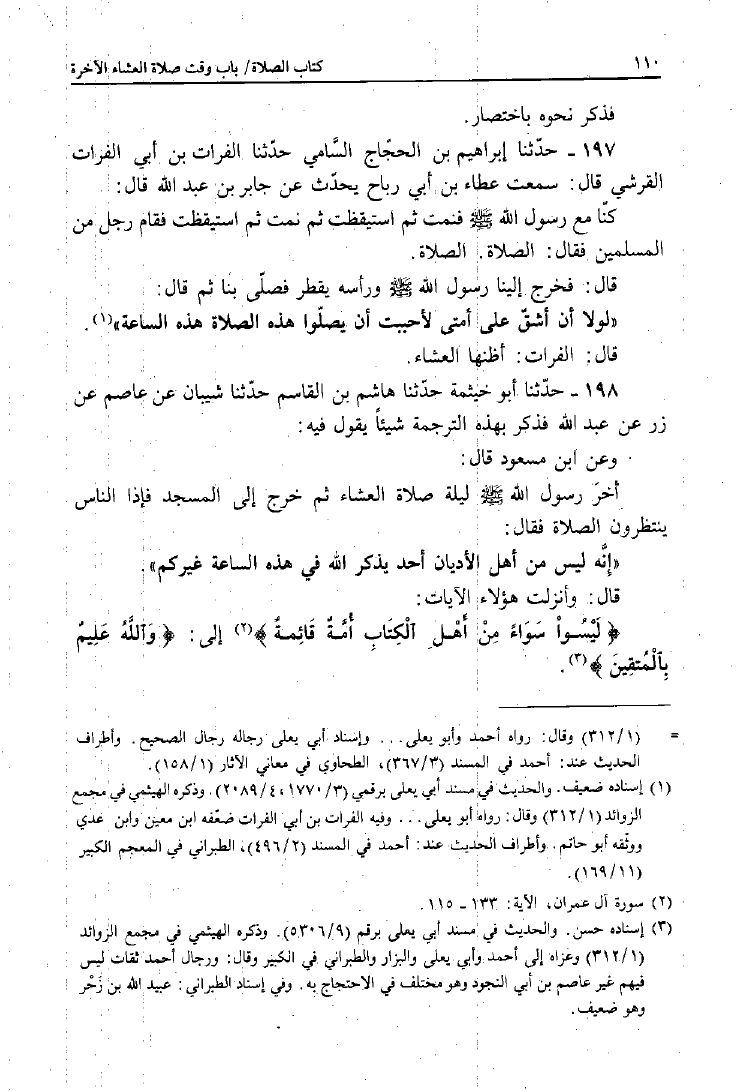 ١١٠ كتاب الصلاة/ باب وقت صلاة العشاء الآخرة
فذكر نحوه باختصار.
١٩٧ ـ حدّثنا إبراهيم بن الحجّاج السَّامي حدّثنا الفرات بن أبي الفرات
القرشي قال: سمعت عطاء بن أبي رباح يحدّث عن جابر بن عبد الله قال:
كنّا مع رسول الله ﷺ فنمت ثم استيقظت ثم نمت ثم استيقظت فقام رجل من
المسلمين فقال: الصلاة. الصلاة.
قال: فخرج إلينا رسول الله ﷺ ورأسه يقطر فصلّى بنا ثم قال:
«لولا أن أشقّ على أمتى لأحببت أن يصلّوا هذه الصلاة هذه الساعة»(١).
قال: الفرات: أظنها العشاء.
١٩٨ ـ حدّثنا أبو خيثمة حدّثنا هاشم بن القاسم حدّثنا شيبان عن عاصم عن
زر عن عبد الله فذكر بهذه الترجمة شيئاً يقول فيه:
وعن ابن مسعود قال:
أخرَ رسول الله ﷺ ليلة صلاة العشاء ثم خرج إلى المسجد فإذا الناس
ينتظرون الصلاة فقال:
«إنَّه ليس من أهل الأديان أحد يذكر الله في هذه الساعة غيركم».
قال: وأنزلت هؤلاء الآيات:
﴿ لَيْسُواْ سَوَاءً مِنْ أَهْلِ ٱلْكِتَابِ أُمَّةٌ قَائِمةٌ ﴾(٢) إلى: ﴿ وَٱللَّهُ عَلِيمٌ
بِٱلْمُتقِينَ ﴾(٣).
= (٣١٢/١) وقال: رواه أحمد وأبو يعلى... وإسناد أبي يعلى رجاله رجال الصحيح. وأطراف
الحديث عند: أحمد في المسند (٣٦٧/٣)، الطحاوي في معاني الآثار (١٥٨/١).
(١) إسناده ضعيف. والحديث في مسند أبي يعلى برقمي (١٧٧٠/٣، ٢٠٨٩/٤). وذكره الهيثمي في مجمع
الزوائد (٣١٢/١) وقال: رواه أبو يعلى... وفيه الفرات بن أبي الفرات ضعّفه ابن معين وابن عدي
ووثّقه أبو حاتم. وأطراف الحديث عند: أحمد في المسند (٤٩٦/٢)، الطبراني في المعجم الكبير
(١٦٩/١١).
(٢) سورة آل عمران، الآية: ١٣٣ ـ ١١٥.
(٣) إسناده حسن. والحديث في مسند أبي يعلى برقم (٥٣٠٦/٩). وذكره الهيثمي في مجمع الزوائد
(٣١٢/١) وعزاه إلى أحمد وأبي يعلى والبزار والطبراني في الكبير وقال: ورجال أحمد ثقات ليس
فيهم غير عاصم بن أبي النجود وهو مختلف في الاحتجاج به. وفي إسناد الطبراني: عبيد الله بن زَحْر
وهو ضعيف.